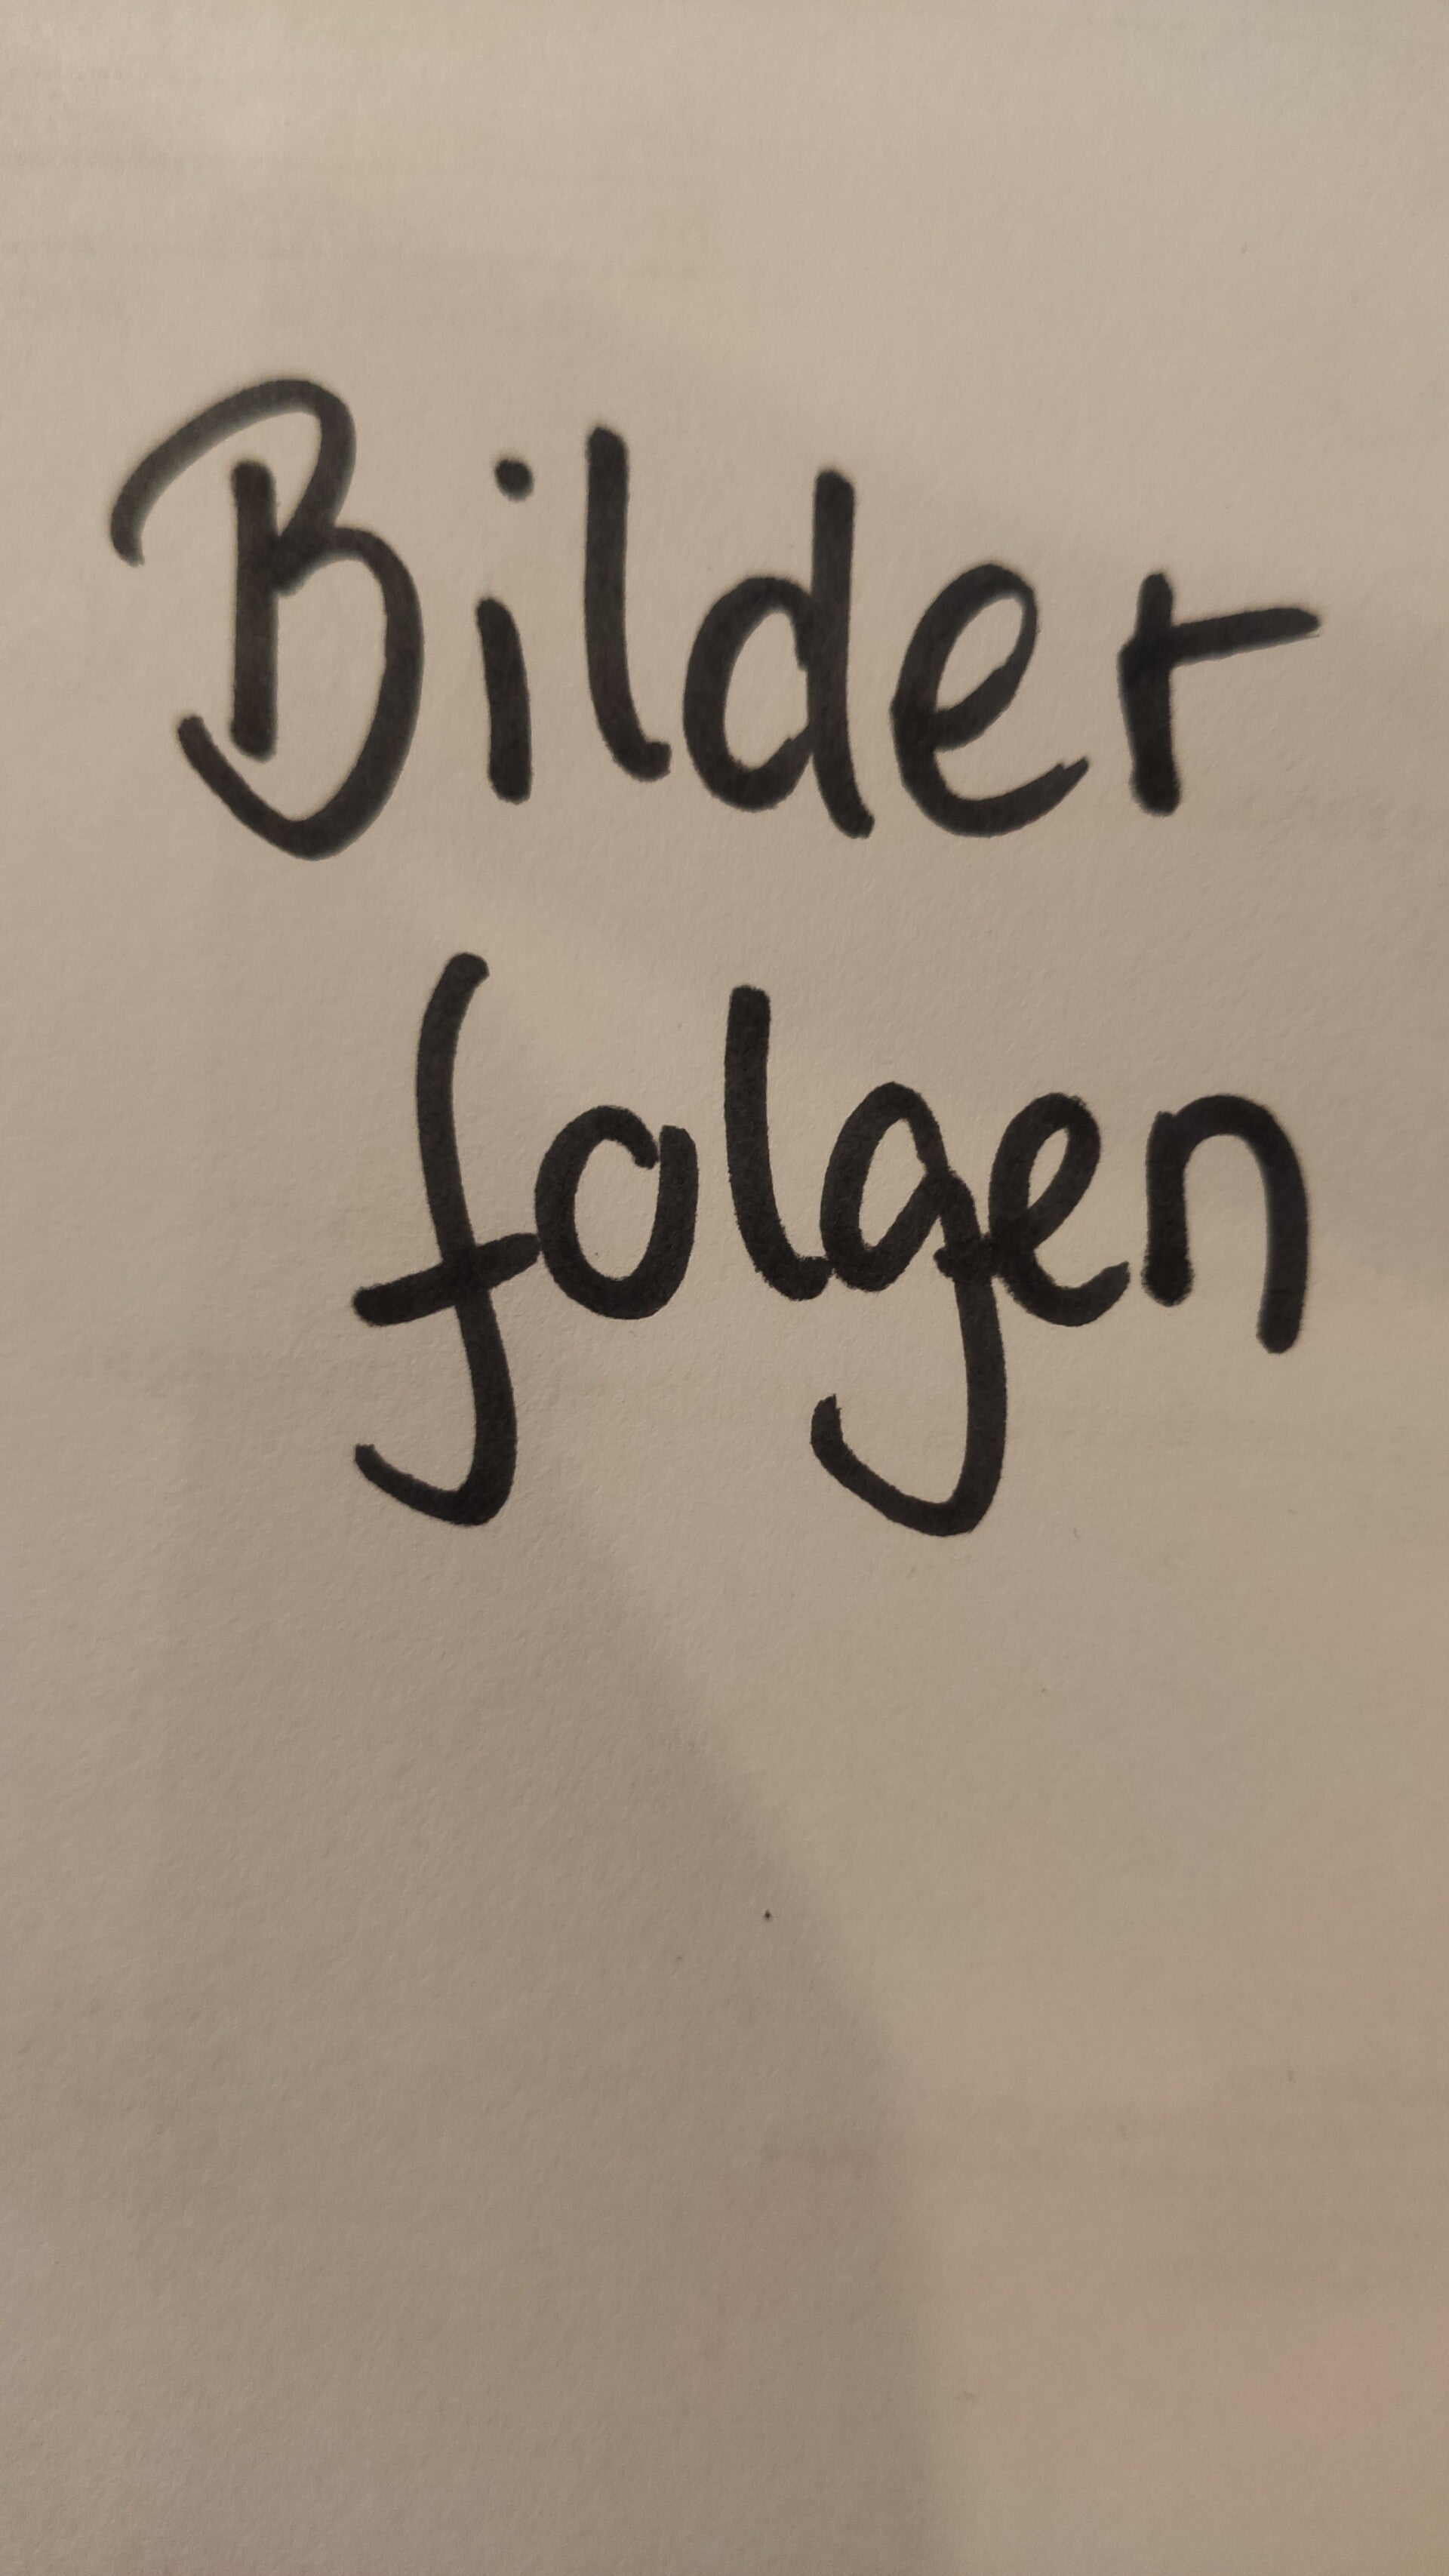 Bilder
folgen